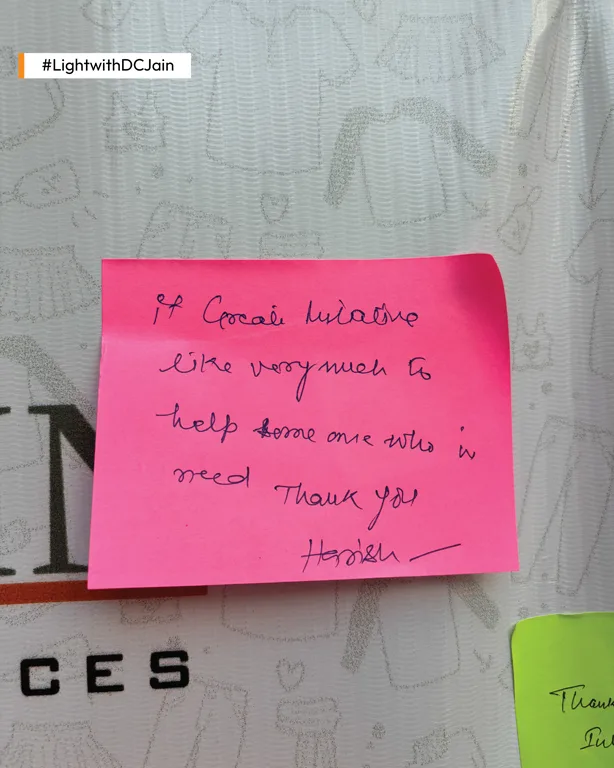 #LightwithDCJain
it Great Initative
like very much to
help some one who in
need Thank you
Harish
N
CES
Thank